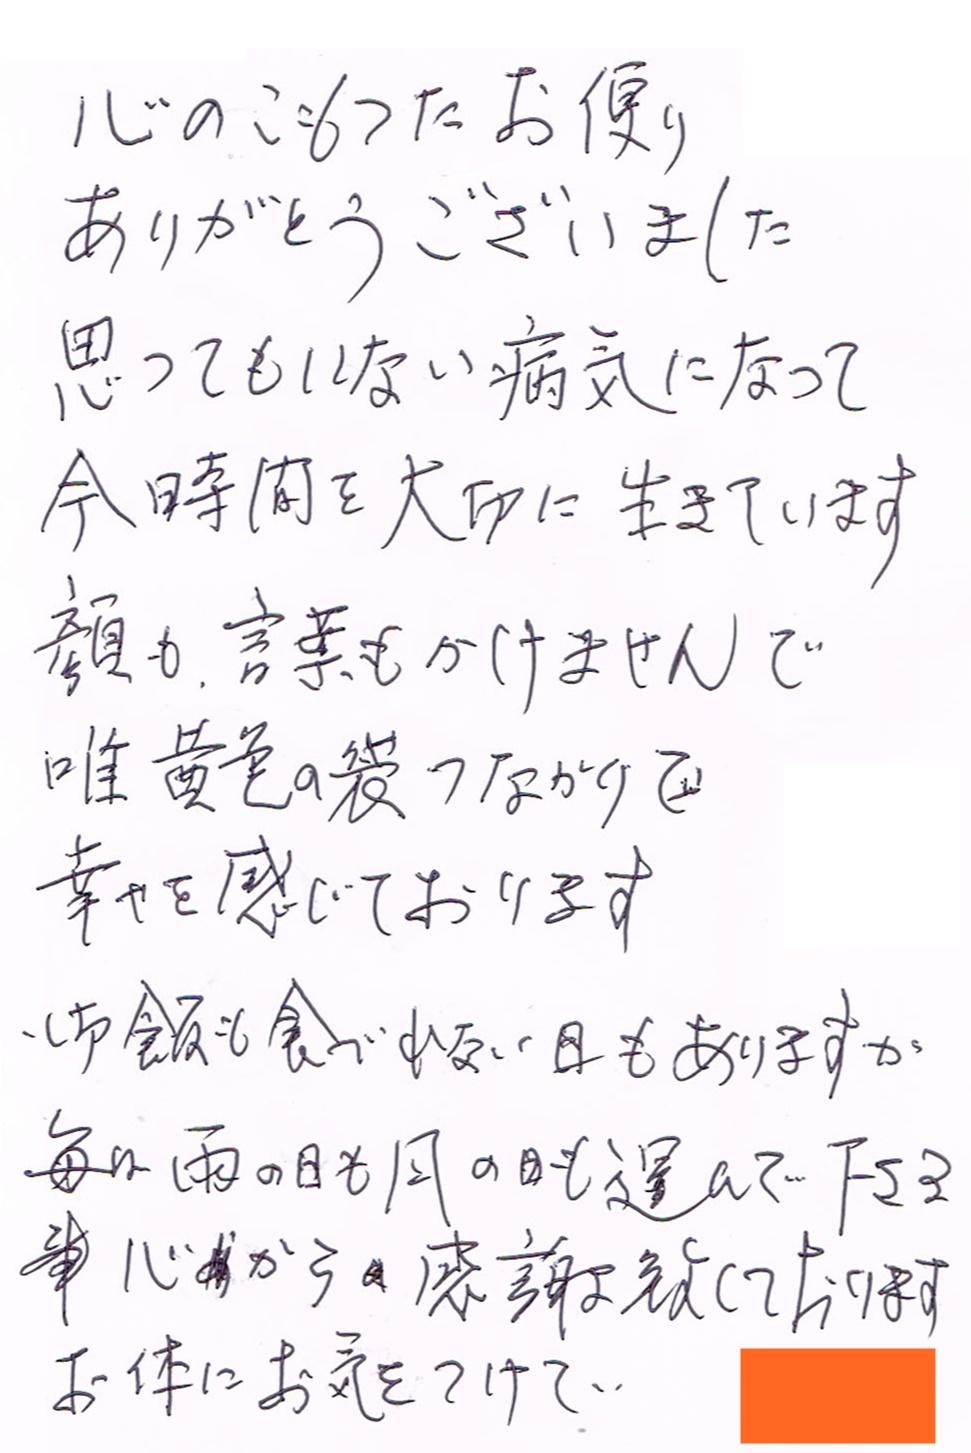 心のこもったお便り
ありがとうございました
思ってもいない病気になって
今時間を大切に生きています
顔も、言葉もかけませんで
唯黄色の袋つながりで
幸せを感じております
御飯も食べれない日もありますが
毎日雨の日も風の日も運んで下さる
事心から感謝致しております
お体にお気をつけて